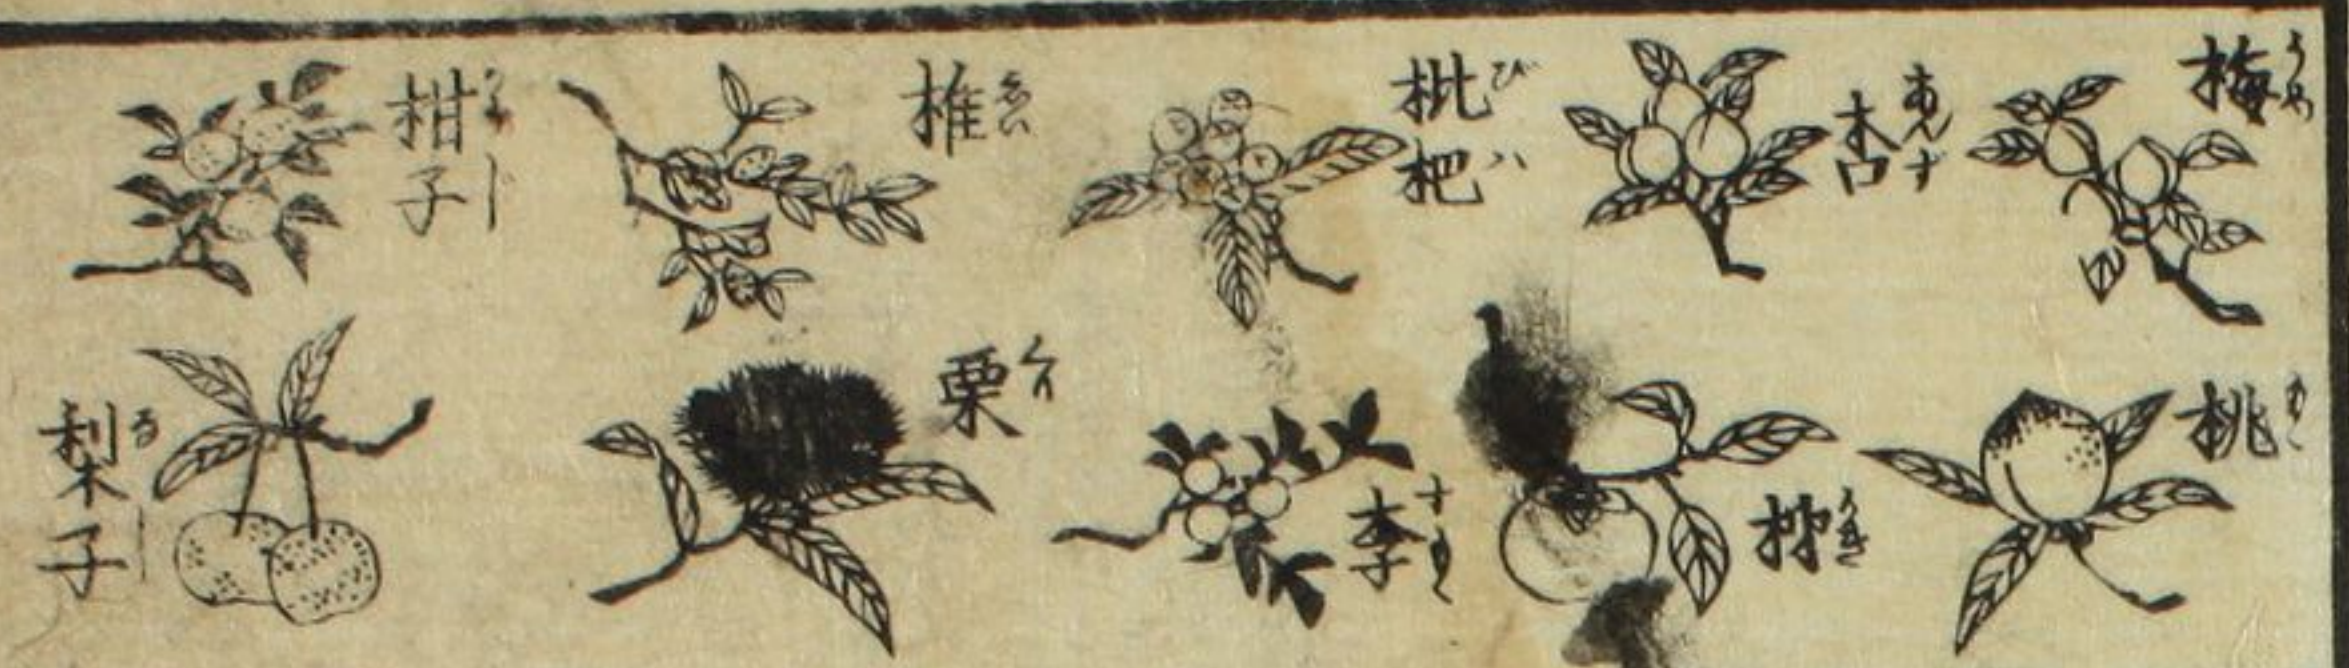 梅 うめ
杏 あんず
枇杷 びハ
椎 しい
柑子 かうじ
桃 もゝ
柿 かき
李 すもゝ
栗 くり
梨子 なし